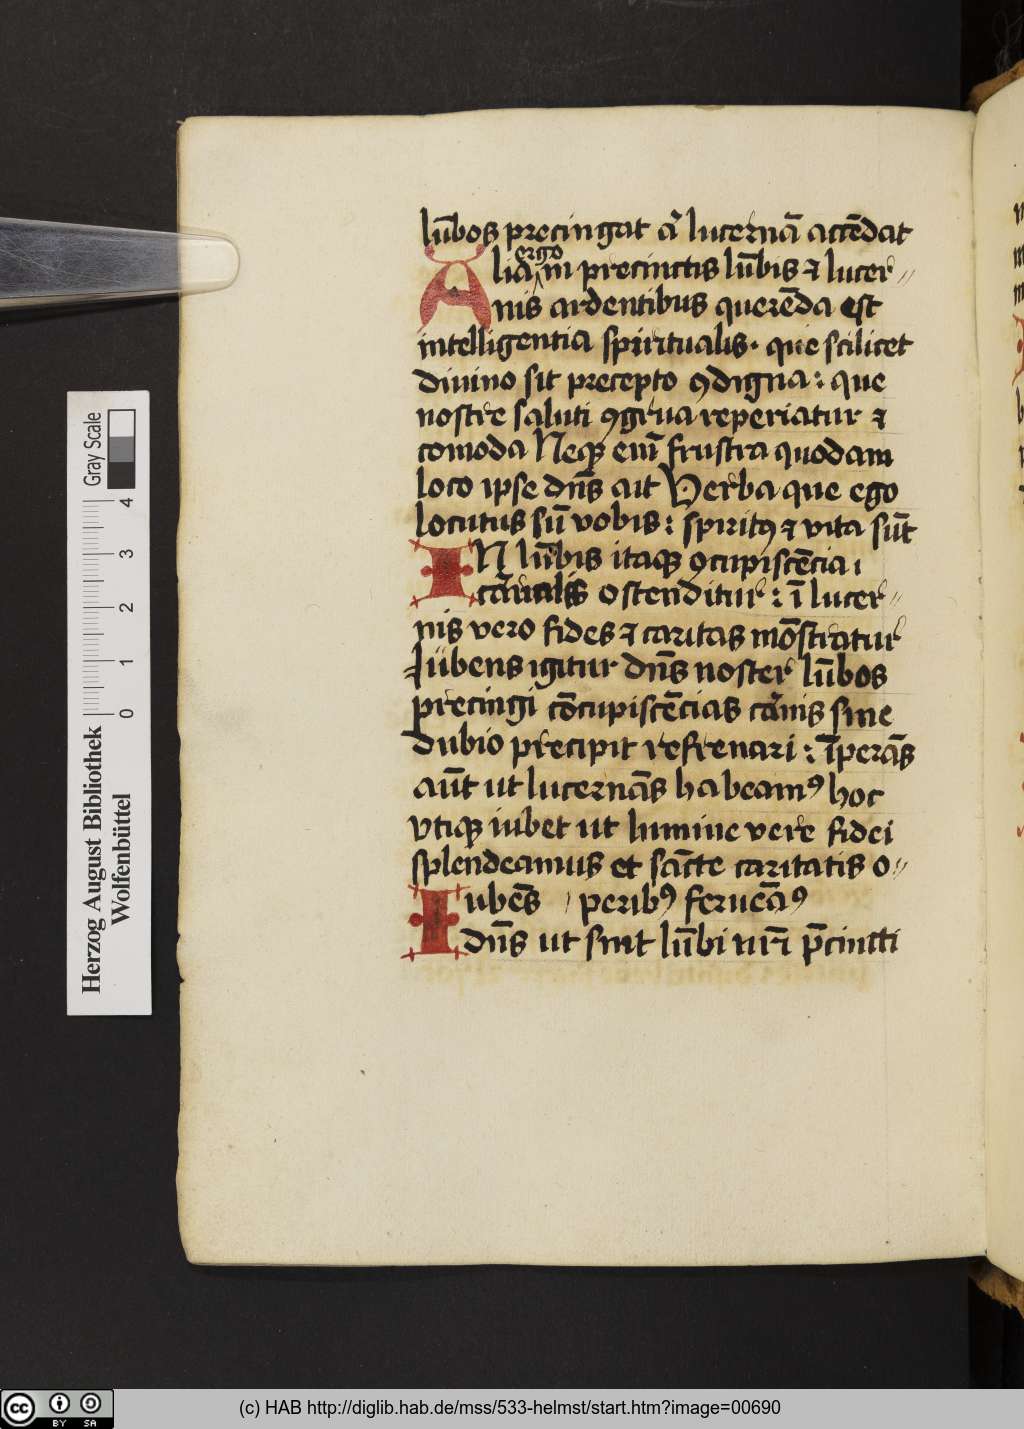 lūbos precingat a͛ lucernā accēdat
ergo
Alia in precinctis lūbis ⁊ lucer〃
nis ardentibus querēda est
intelligentia spiritualis· que scilicet
diuino sit precepto ꝯdigna : que
nostre saluti ꝯgrua reperiatur ⁊
comoda Neqꝫ eni͛ frustra quodam
loco ipse dn̄s ait Verba que ego
locutus sū vobis : spiritꝰ ⁊ vita sūt
IN lūbis itaqꝫ ꝯcupiscēcia
carnalis ostenditur : ī lucer〃
nis vero fides ⁊ caritas mōstratur
Iubens igitur dn̄s noster lūbos
precingi cōcupiscēcias carnis sine
dubio precipit refrenari : īperās
aūt ut lucernās habeamꝰ hoc
vtiqꝫ iubet ut lumine vere fidei
splendeamus et sācte caritatis o〃
Iubēs peribꝰ ferueāꝰ
dn̄s ut sint lūbi nr̄i p̄cincti
Herzog August Bibliothek
Wolfenbüttel
0 1 2 3 4
Gray Scale
cc BY SA
(c) HAB http://diglib.hab.de/mss/533-helmst/start.htm?image=00690